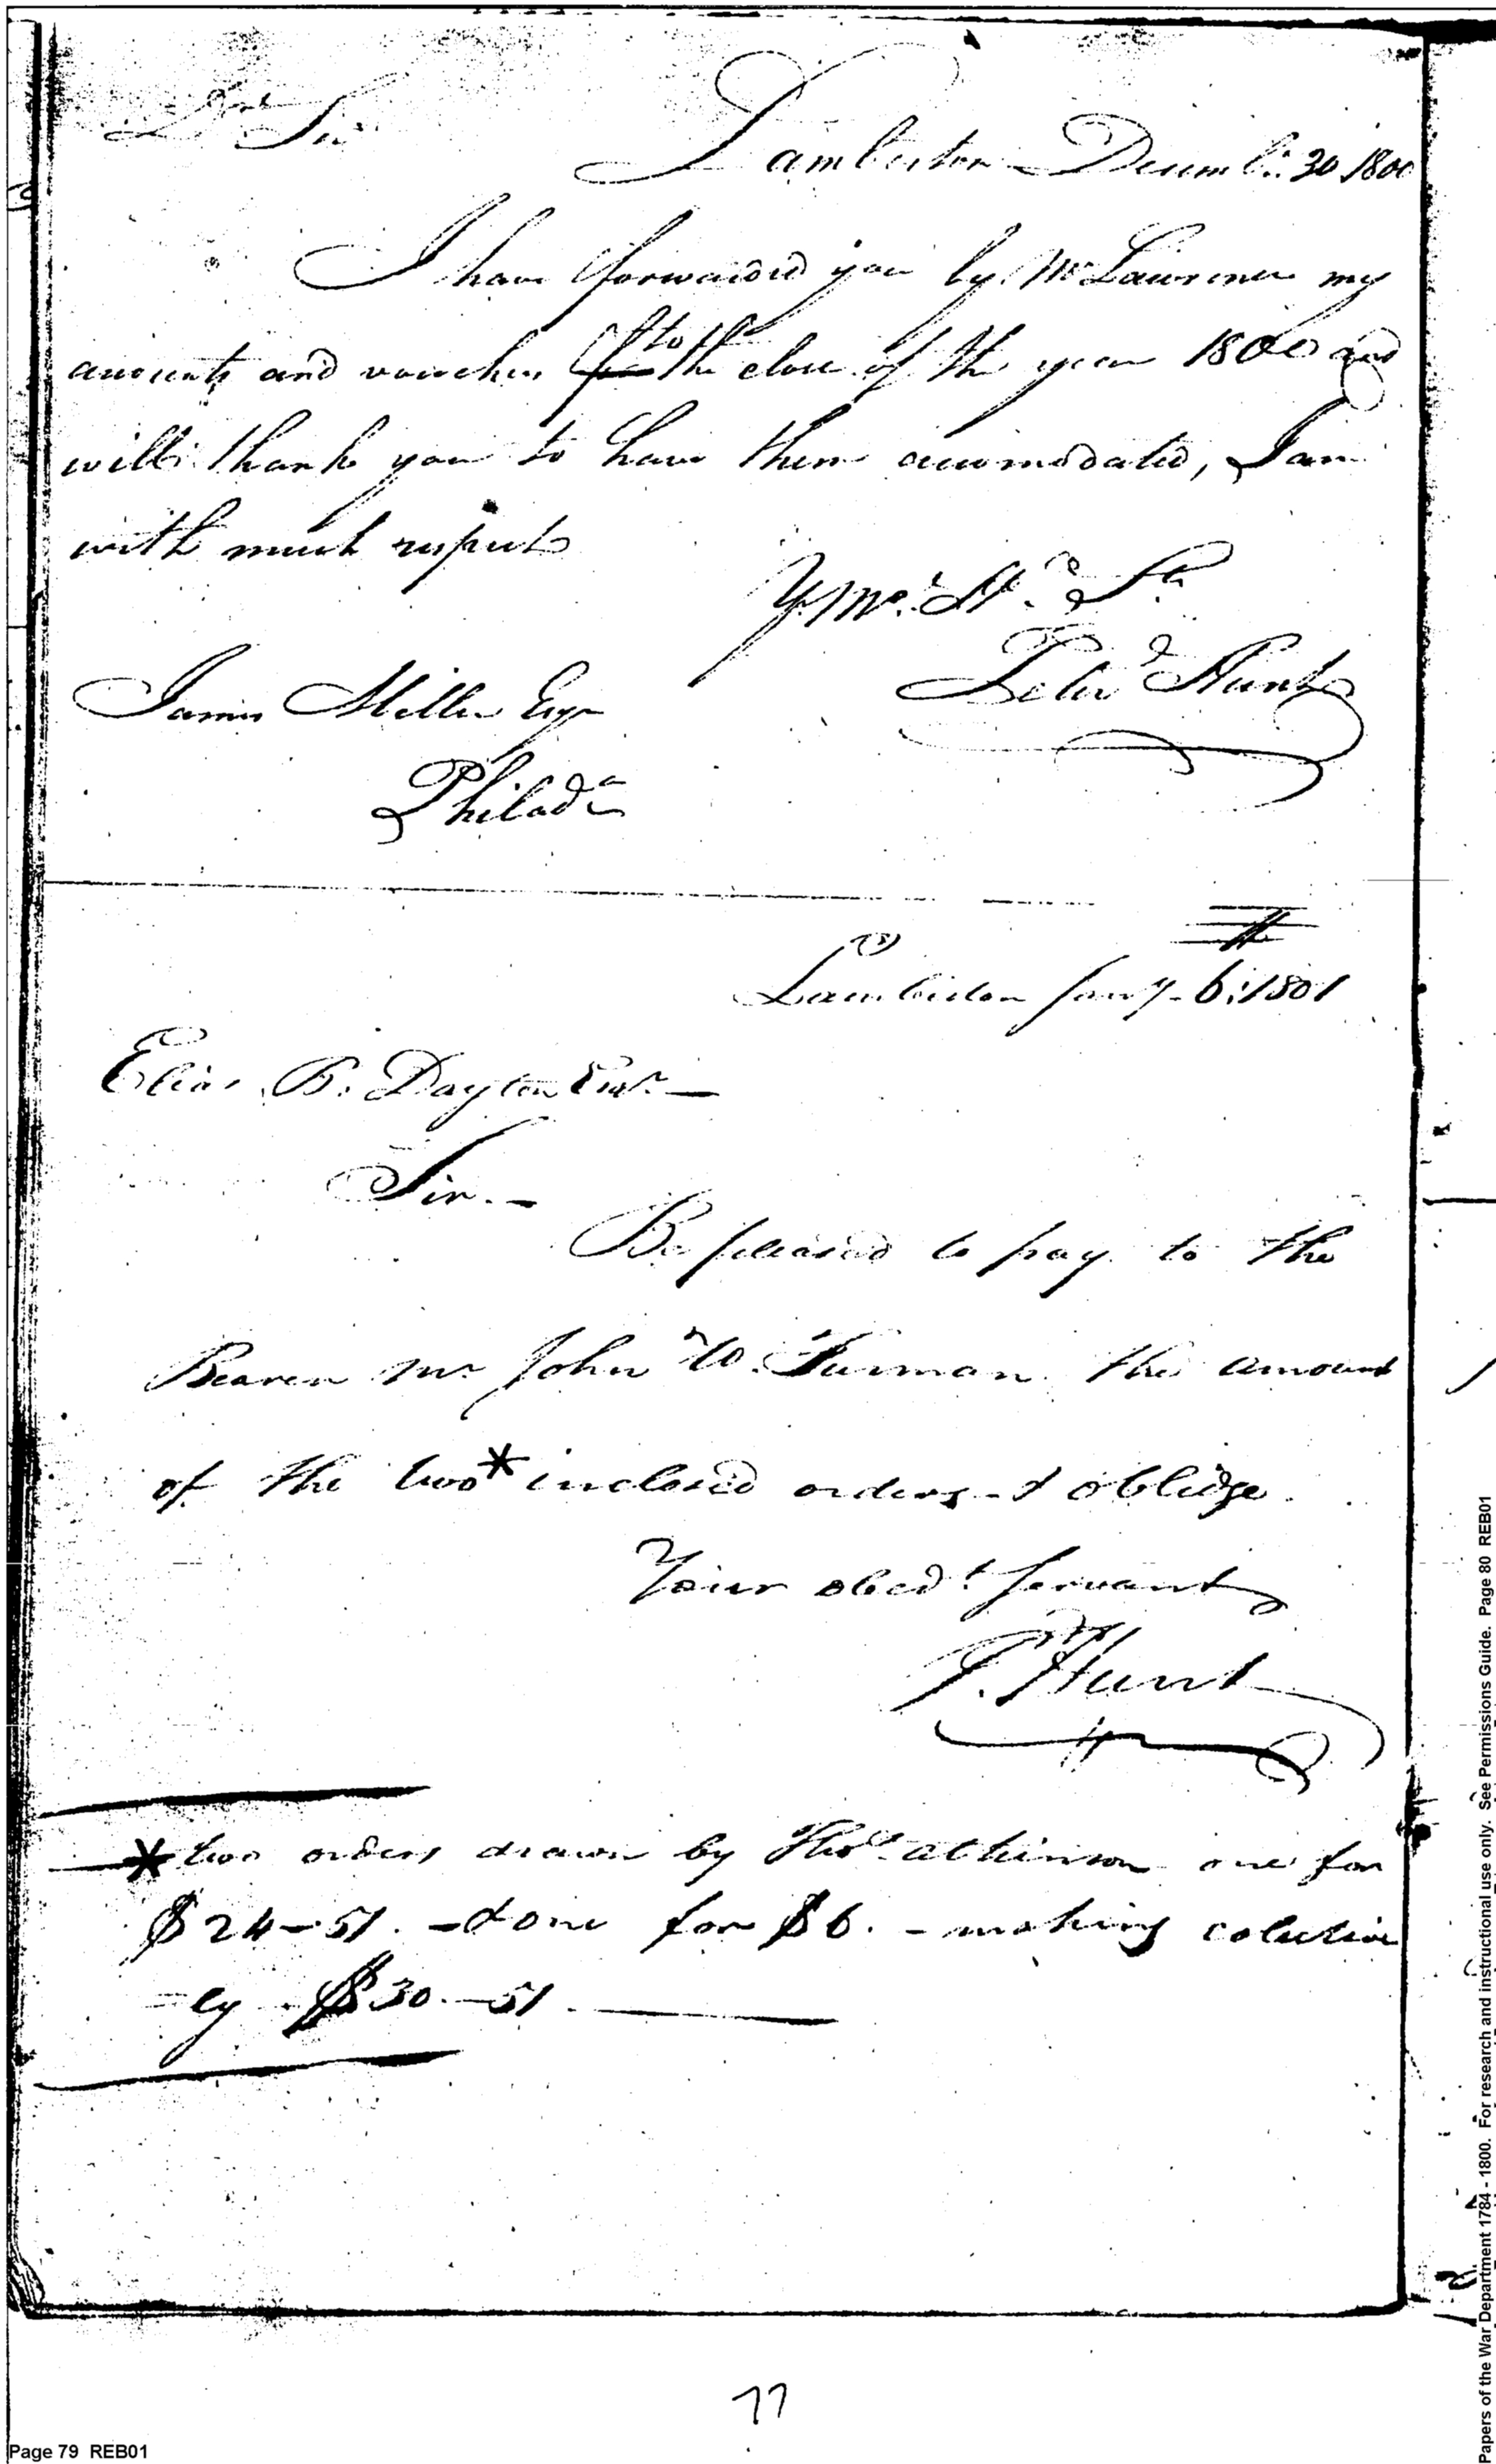 Dr Sir
Lamberton Decembr. 30 1800
I have forwarded you by Mr Lawrence my
accounts and vouchers to the close of the year 1800 and
will thank you to have them accomodated, I am
with much respect
Y. Mo. St.
Peter Hunt
James Miller Esqr
Philada
Lamberton Jany. 6: 1801
Elias B. Dayton Esqr. —
Sir. —
Be pleased to pay to the
Bearer Mr John W. Furman the amount
of the two * inclosed orders - & oblidge
Your obedt. Servant
P. Hunt
* two orders drawn by Thos. atkinson one for
$ 24-51. - & one for $6. - making colective
- ly $30.-51. —
77
Page 79 REB01
Papers of the War Department 1784 - 1800. For research and instructional use only. See Permissions Guide. Page 80 REB01